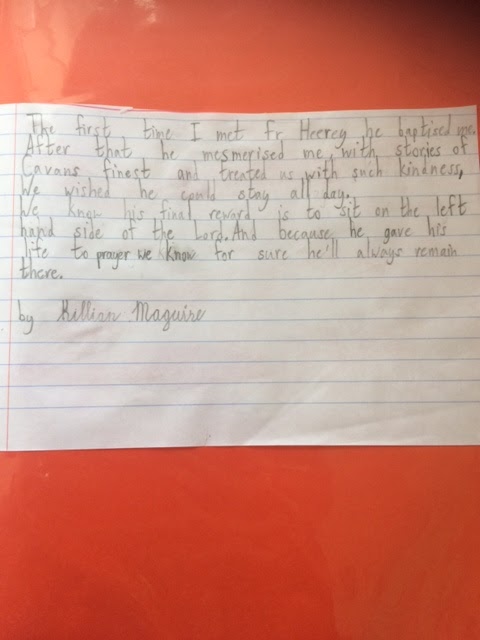 The first time I met Fr Heerey he baptised me.
After that he mesmerised me with stories of
Cavans finest and treated us with such kindness,
We wished he could stay all day.
We know his final reward is to sit on the left
hand side of the Lord. And because he gave his
life to prayer we know for sure he'll always remain
there.
by Killian Maguire